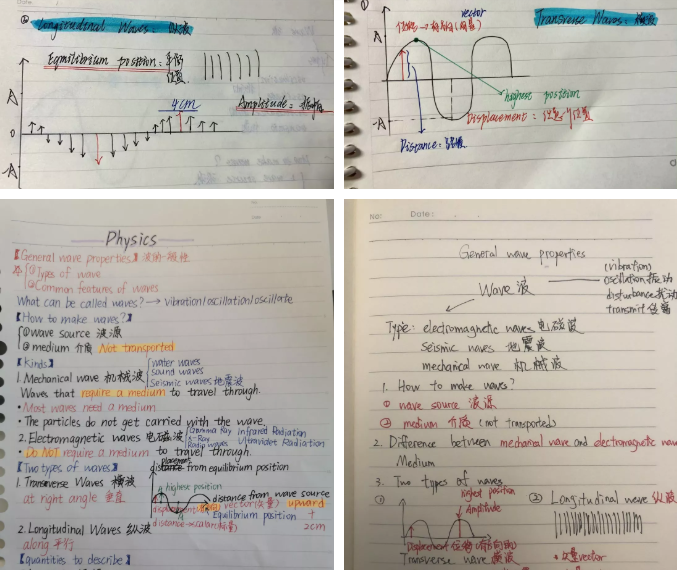 ② Longitudinal Waves: 纵波
Equilibrium position: 平衡
位置
4cm
Amplitude: 振幅
A
0
-A
①
vector
Transverse Waves: 横波
A
highest position
Displacement:
-A
Distance: 路程
Physics
【General wave properties】波的一般性
①Types of wave
②Common features of waves
What can be called waves? → vibration/oscillation/oscillate
【How to make waves?】
①wave source 波源
②medium 介质 Not transported
【Kinds】
water waves
sound waves
1. Mechanical wave 机械波
Seismic waves 地震波
Waves that require a medium to travel through.
• Most waves need a medium
• The particles do not get carried with the wave.
2. Electromagnetic waves 电磁波
Gamma Ray Infrared Radiation
X-Ray
Radio waves Ultraviolet Radiation
• Do NOT require a medium to travel through.
【Two types of waves】
distance from equilibrium position
1. Transverse Waves 横波
highest position
at right angle 垂直
distance from wave source
vector(矢量) upward
Equilibrium position
+
2cm
2. Longitudinal Waves 纵波
along 平行
【quantities to describe】
No:
Date:
General wave properties
Wave 波
(vibration)
oscillation 振动
disturbance 扰动
transmit 传播
Type: electromagnetic waves 电磁波
seismic waves 地震波
mechanical wave 机械波
1. How to make waves?
① wave source 波源
② medium 介质 (not transported)
2. Difference between mechanical wave and electromagnetic wave
Medium
3. Two types of waves
①
highest position
Amplitude
② Longitudinal wave 纵波
Displacement 位移
Transverse wave 横波
矢量 vector